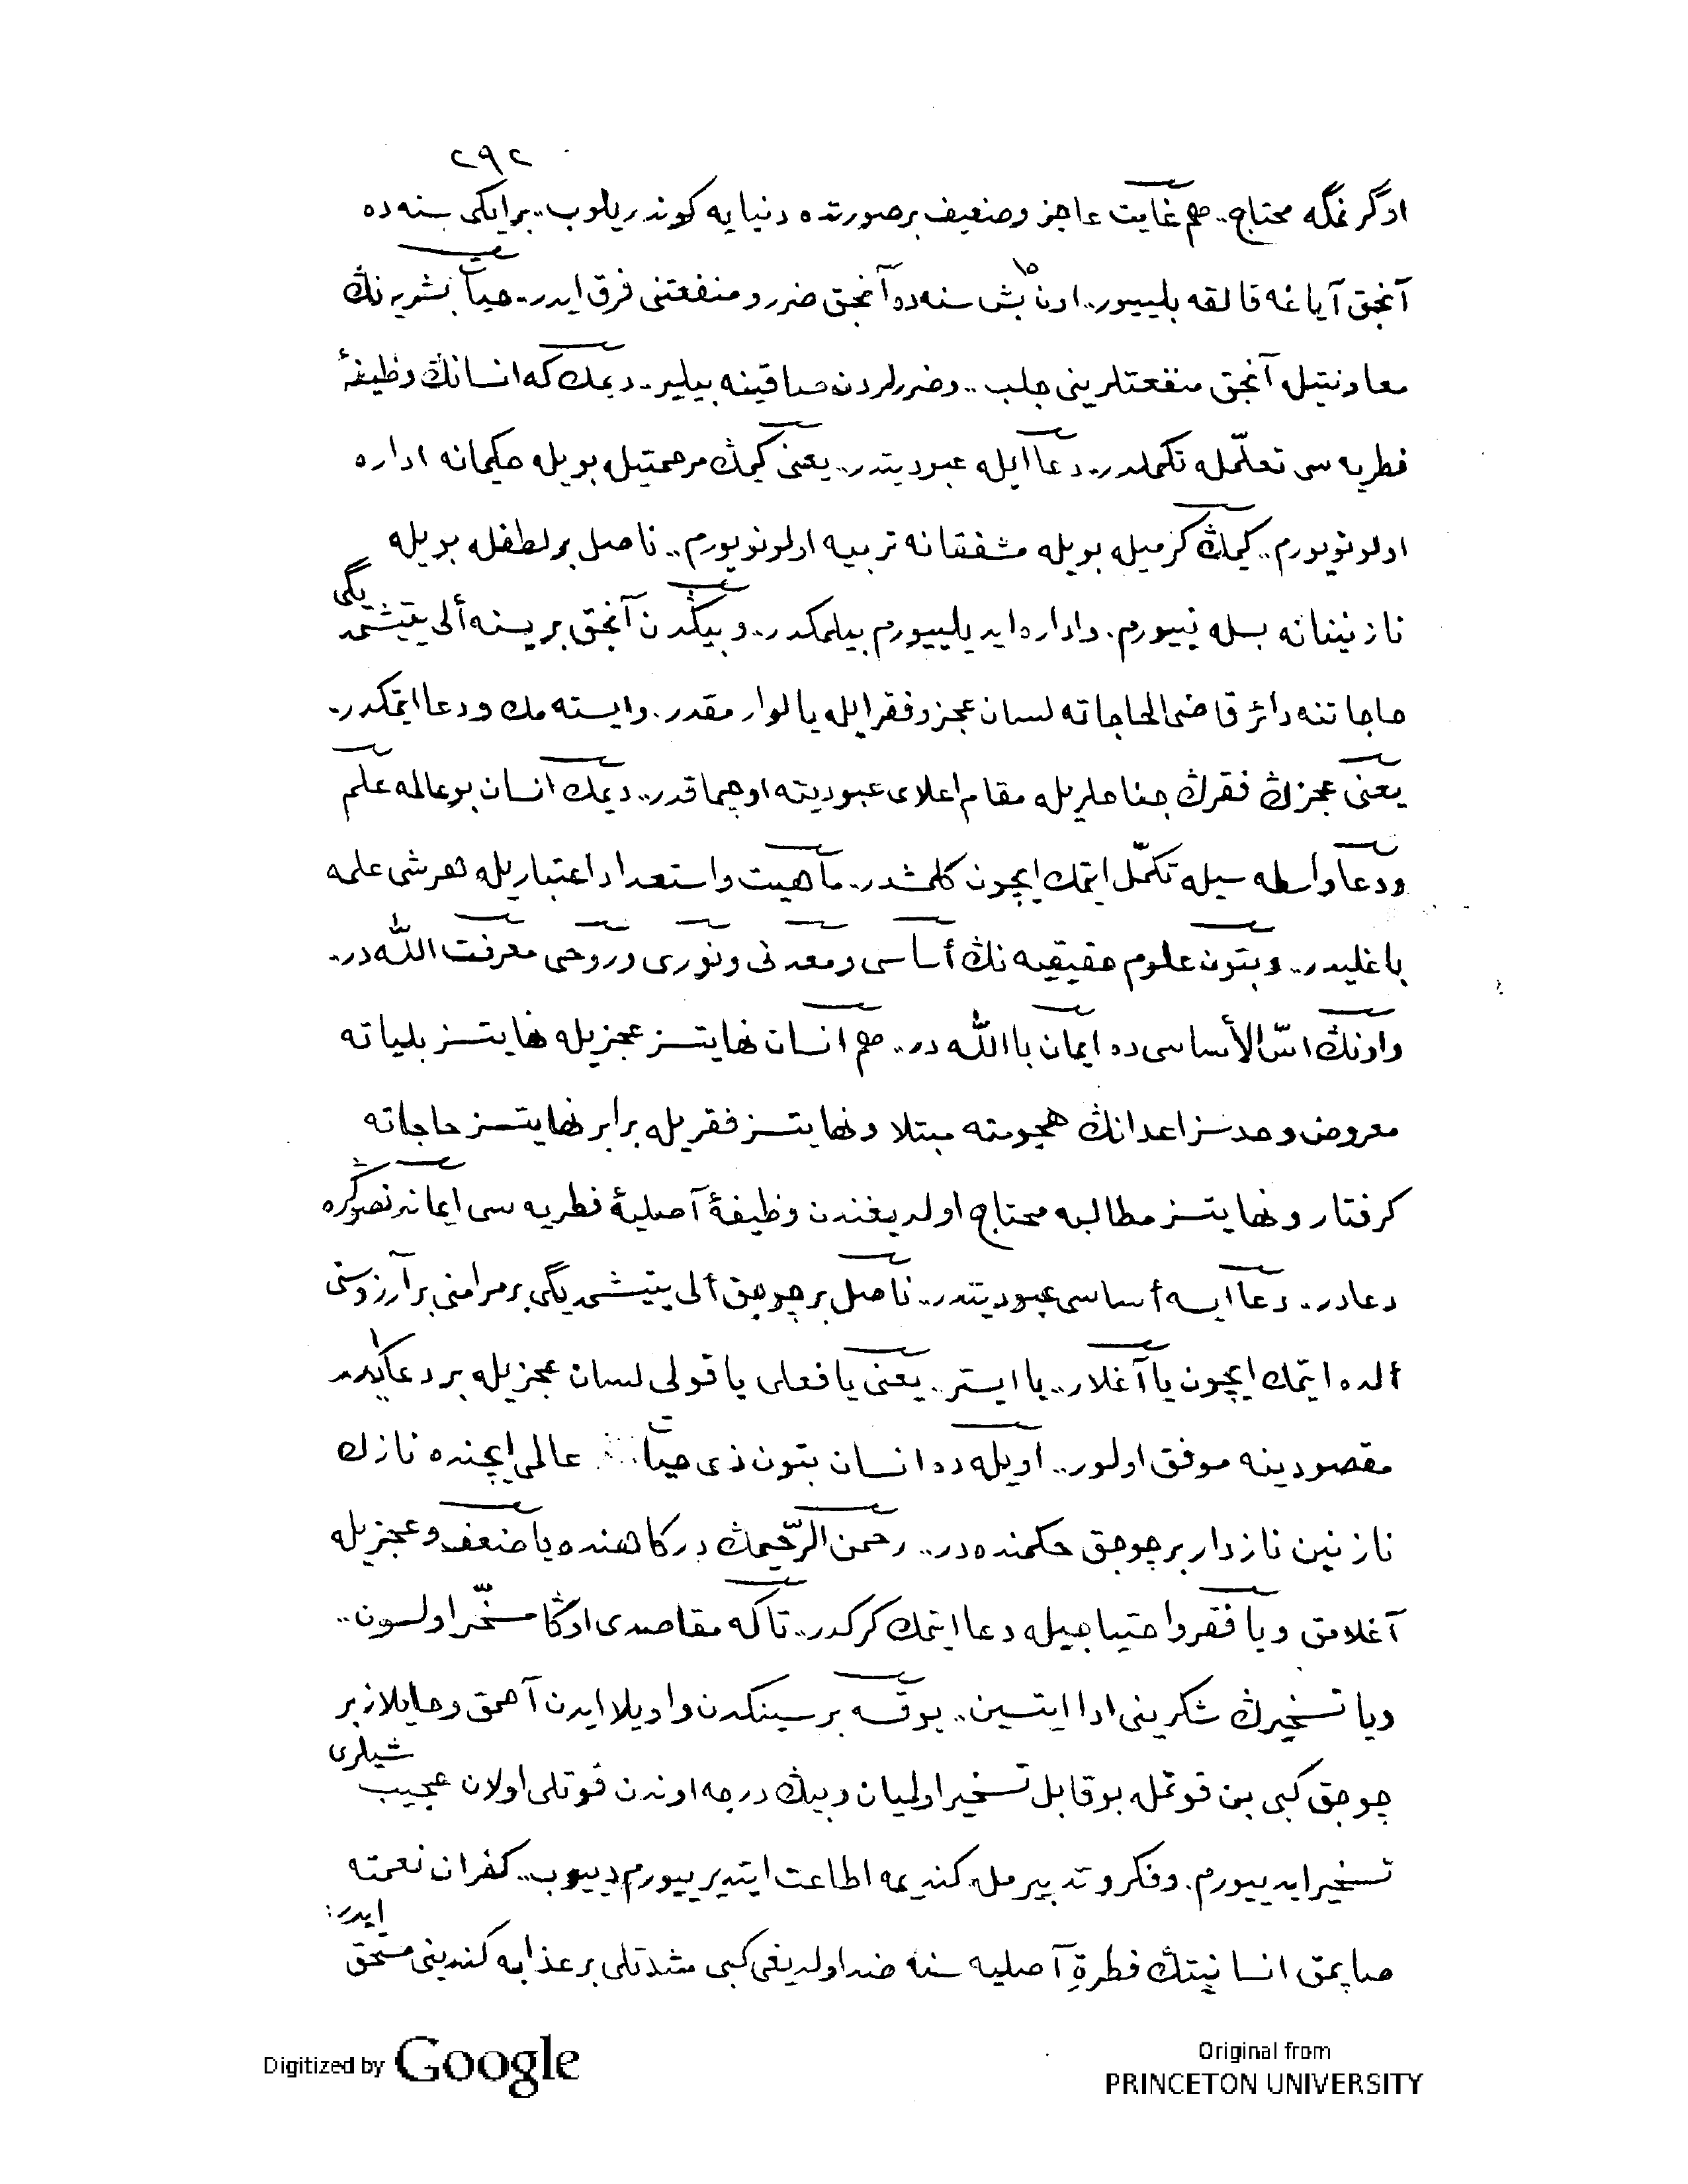 ٢٩٢
اوگرنمگه محتاج.. هم غايت عاجز وضعيف برصورتده دنيايه كوندريلوب.. برايكى سنه ده
آنجق آياغه قالقه بليیور.. اون بش سنه ده آنجق ضرر ومنفعتنى فرق ايدر.. حيات بشريه نڭ
معاونتيله آنجق منفعتلرينى جلب.. وضررلردن صاقينه بيلير.. ديمك كه انسانڭ وظيفۀ
فطريه سى تعلّمله تكملدر.. دعا ايله عبوديتدر.. يعنى كيمڭ مرحمتيله بويله حكيمانه اداره
اولونويورم.. كيمڭ كرميله بويله مشفقانه تربيه اولونويورم.. ناصل بر لطفله بويله
نازنينانه بسله نييورم. واداره ايديلييورم بيلمكدر.. وبيڭدن آنجق بريسنه ألى يتيشمديگى
حاجاتنه دائر قاضى الحاجاته لسان عجز وفقر ايله يالوارمقدر. وايسته مك ودعا ايتمكدر..
يعنى عجزڭ فقرڭ جناحلريله مقام اعلاى عبوديته اوچماقدر.. ديمك انسان بوعالمه علم
ودعا واسطه سيله تكمّل ايتمك ايچون كلمشدر.. ماهيت واستعداد اعتباريله هرشى علمه
باغليدر.. وبتون علوم حقيقيه نڭ أساسى ومعدنى ونورى وروحى معرفت الله در..
واونڭ اسّ الأساسى ده ايمان باالله در.. هم انسان نهايتسز عجزيله نهايتسز بلياته
معروض وحدسز اعدانڭ هجومنه مبتلا ونهايتسز فقريله برابر نهايتسز حاجاته
كرفتار ونهايتسز مطالبه محتاج اولديغندن وظيفۀ آصليۀ فطريه سى ايماندنصوڭره
دعادر.. دعا ايسه أساسى عبوديتدر.. ناصل بر چوجق ألى يتيشمديگى بر مرامنى بر آرزوسنى
ألده ايتمك ايچون يا آغلار.. يا ايستر.. يعنى يا فعلى يا قولى لسان عجزيله بر دعا ايدر
مقصودينه موفق اولور.. اويله ده انسان بتون ذى حيات عالمى ايچنده نازك
نازنين نازدار بر چوجق حكمنده در.. رحمن الرّحيمڭ دركاهنده يا ضعف وعجزيله
آغلامق ويا فقر واحتياجيله دعا ايتمك كركدر.. تاكه مقاصدى اوڭا مسخّر اولسون..
ويا تسخيرڭ شكرينى ادا ايتسين.. يوقسه بر سينكدن واويلا ايدن آحمق وحايلاز بر
چوجق كبى بن قوتمله بو قابل تسخير اولميان وبيڭ درجه اوندن قوتلى اولان عجيب شيلرى
تسخير ايدييورم. وفكر وتدبيرمله كنديمه اطاعت ايتديرييورم دييوب.. كفران نعمته
صاپمق انسانيتڭ فطرةِ آصليه سنه ضد اولديغى كبى شدتلى بر عذابه كندينى مستحق ايدر:
Digitized by Google
Original from
PRINCETON UNIVERSITY